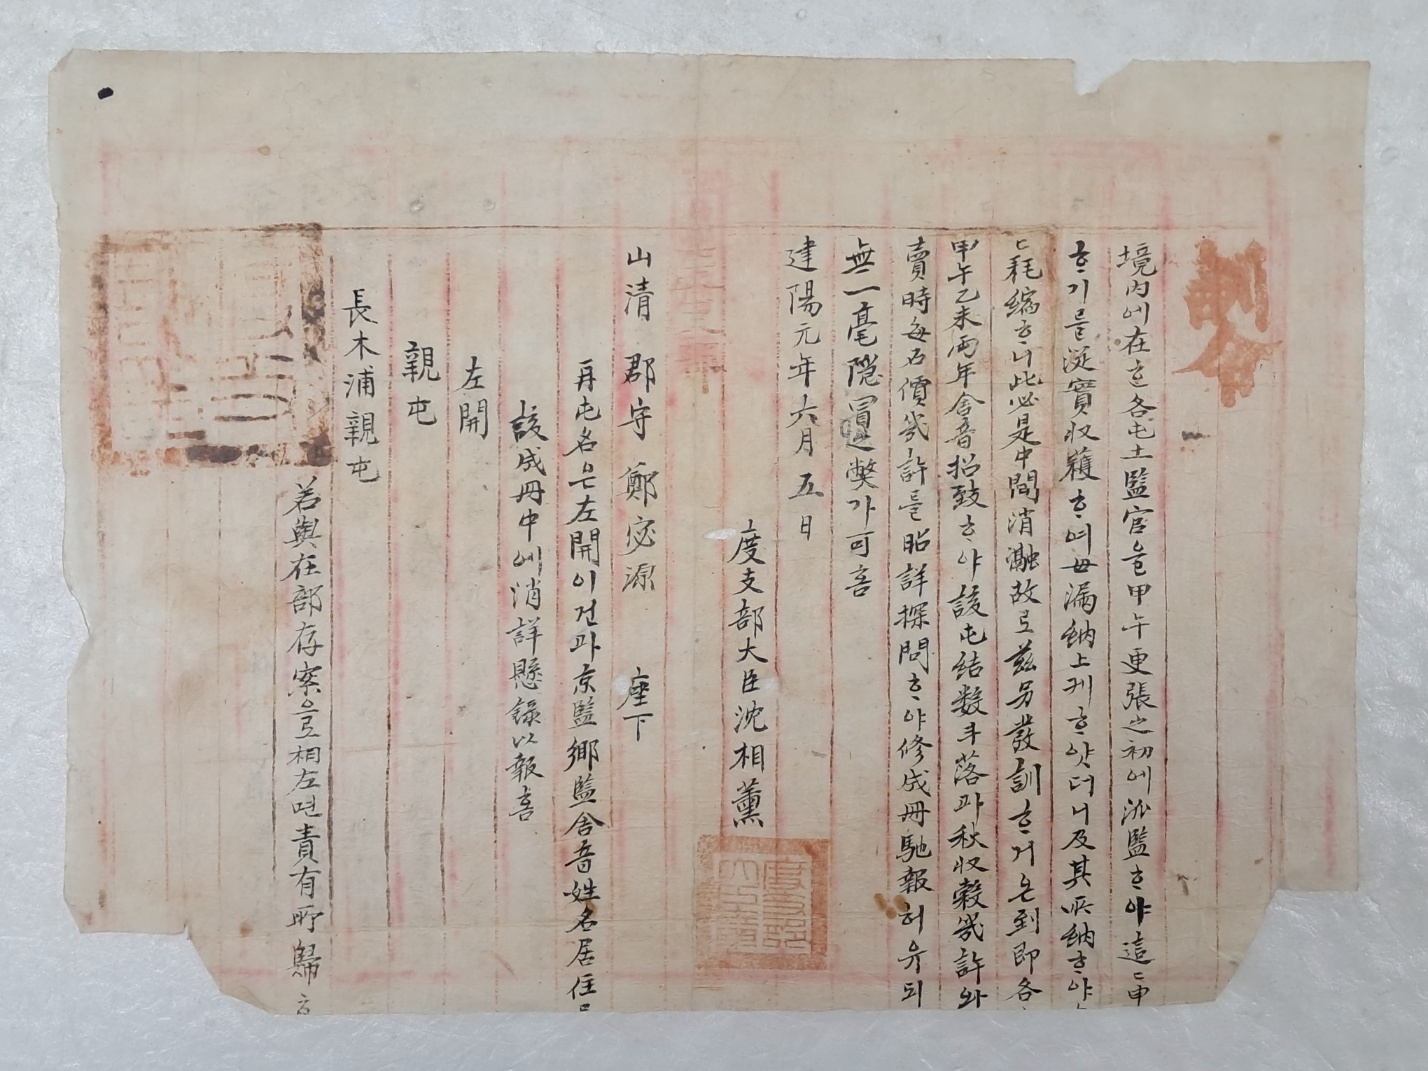 訓令
境內에在ᄒᆞᆫ各屯土監官을甲午更張之初에派監ᄒᆞ야這這申
ᄒᆞ기를從實收穫ᄒᆞ여毋漏納上케ᄒᆞ얏더니及其所納ᄒᆞ야
耗縮ᄒᆞ니此必是中間消瀜故로玆另發訓ᄒᆞ거온到卽各
甲午乙未兩年舍音招致ᄒᆞ야該屯結数斗落과秋收穀幾許와
賣時每石價幾許를昭詳探問ᄒᆞ야修成冊馳報허유되
無一毫隱冒之獘가可喜
建陽元年六月五日
度支部大臣沈相薰
山清郡守鄭宓源座下
再屯名은左開이건과京監鄕監舍音姓名居住
該成冊中에消詳懸錄以報喜
左開
親屯
長木浦親屯
若與在部存案으로相左면責有所歸